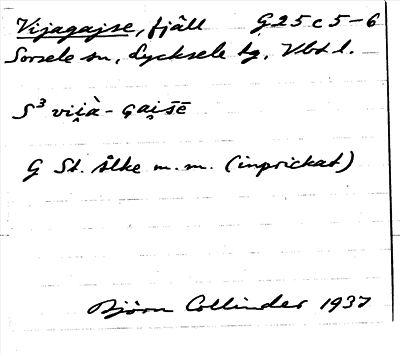 Vijagajse, fjäll G25c5-6
Sorsele sn, Lycksele lg, Vbt l.
S³ vii̯à- gai̯sē
G St. Ålke m. m. (inprickat)
Björn Collinder 1937